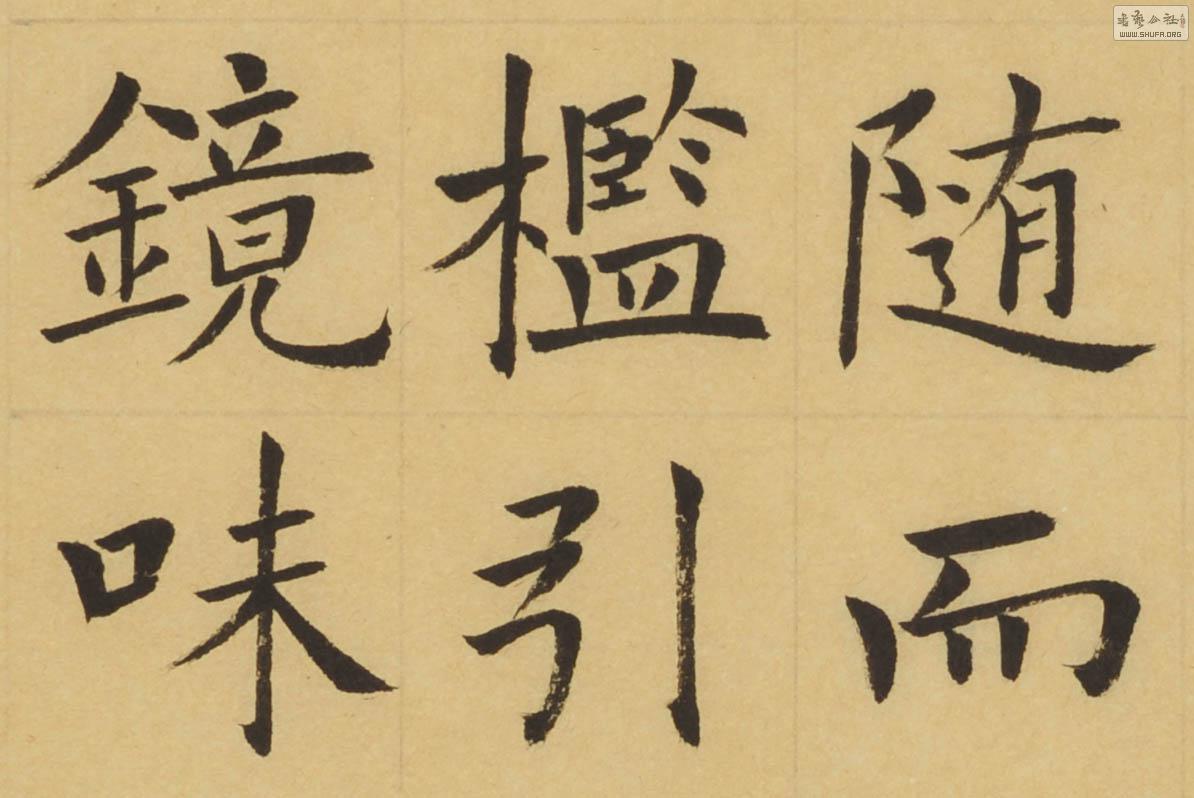 随而
檻引
鏡味
書藝公社
WWW.SHUFA.ORG